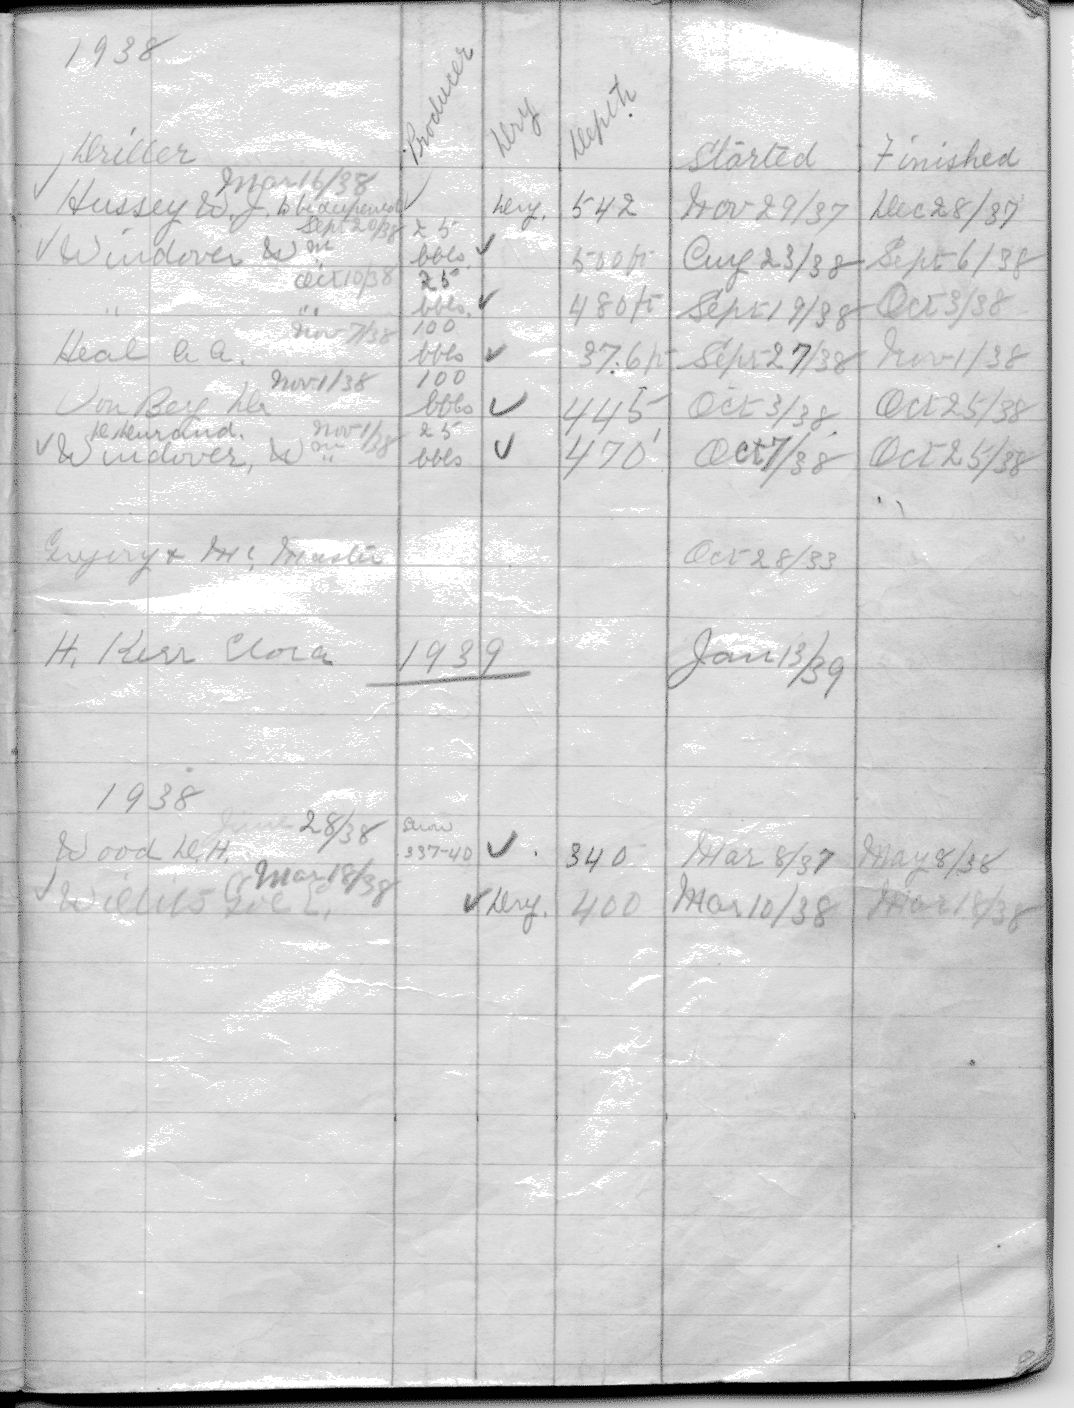 1938
Driller Producer Dry Depth Started Finished
Mar 16/38
Hussey W. J. to be deepened Dry. 542 Nov 29/37 Dec 28/37
Sept 20/38 25
Windover Wm bbls. 500 ft Aug 23/38 Sept 6/38
Oct 10/38 25
" " bbls. 480 ft Sept 19/38 Oct 3/38
Nov 7/38 100
Heal A. A. bbls 37.6 ft Sept 27/38 Nov 1/38
Nov 1/38 100
Von Berg bbls 445 Oct 3/38 Oct 25/38
Nov 1/38 25
Windover, Wm bbls 470' Oct 7/38 Oct 25/38
Gregory & Mc Master Oct 28/33
H. Kerr Elora 1939 Jan 13/39
1938
June 28/38 Show
Wood D. H. 337-40 340 Mar 8/37 May 8/38
Mar 18/38
Dry. 400 Mar 10/38 Mar 18/38